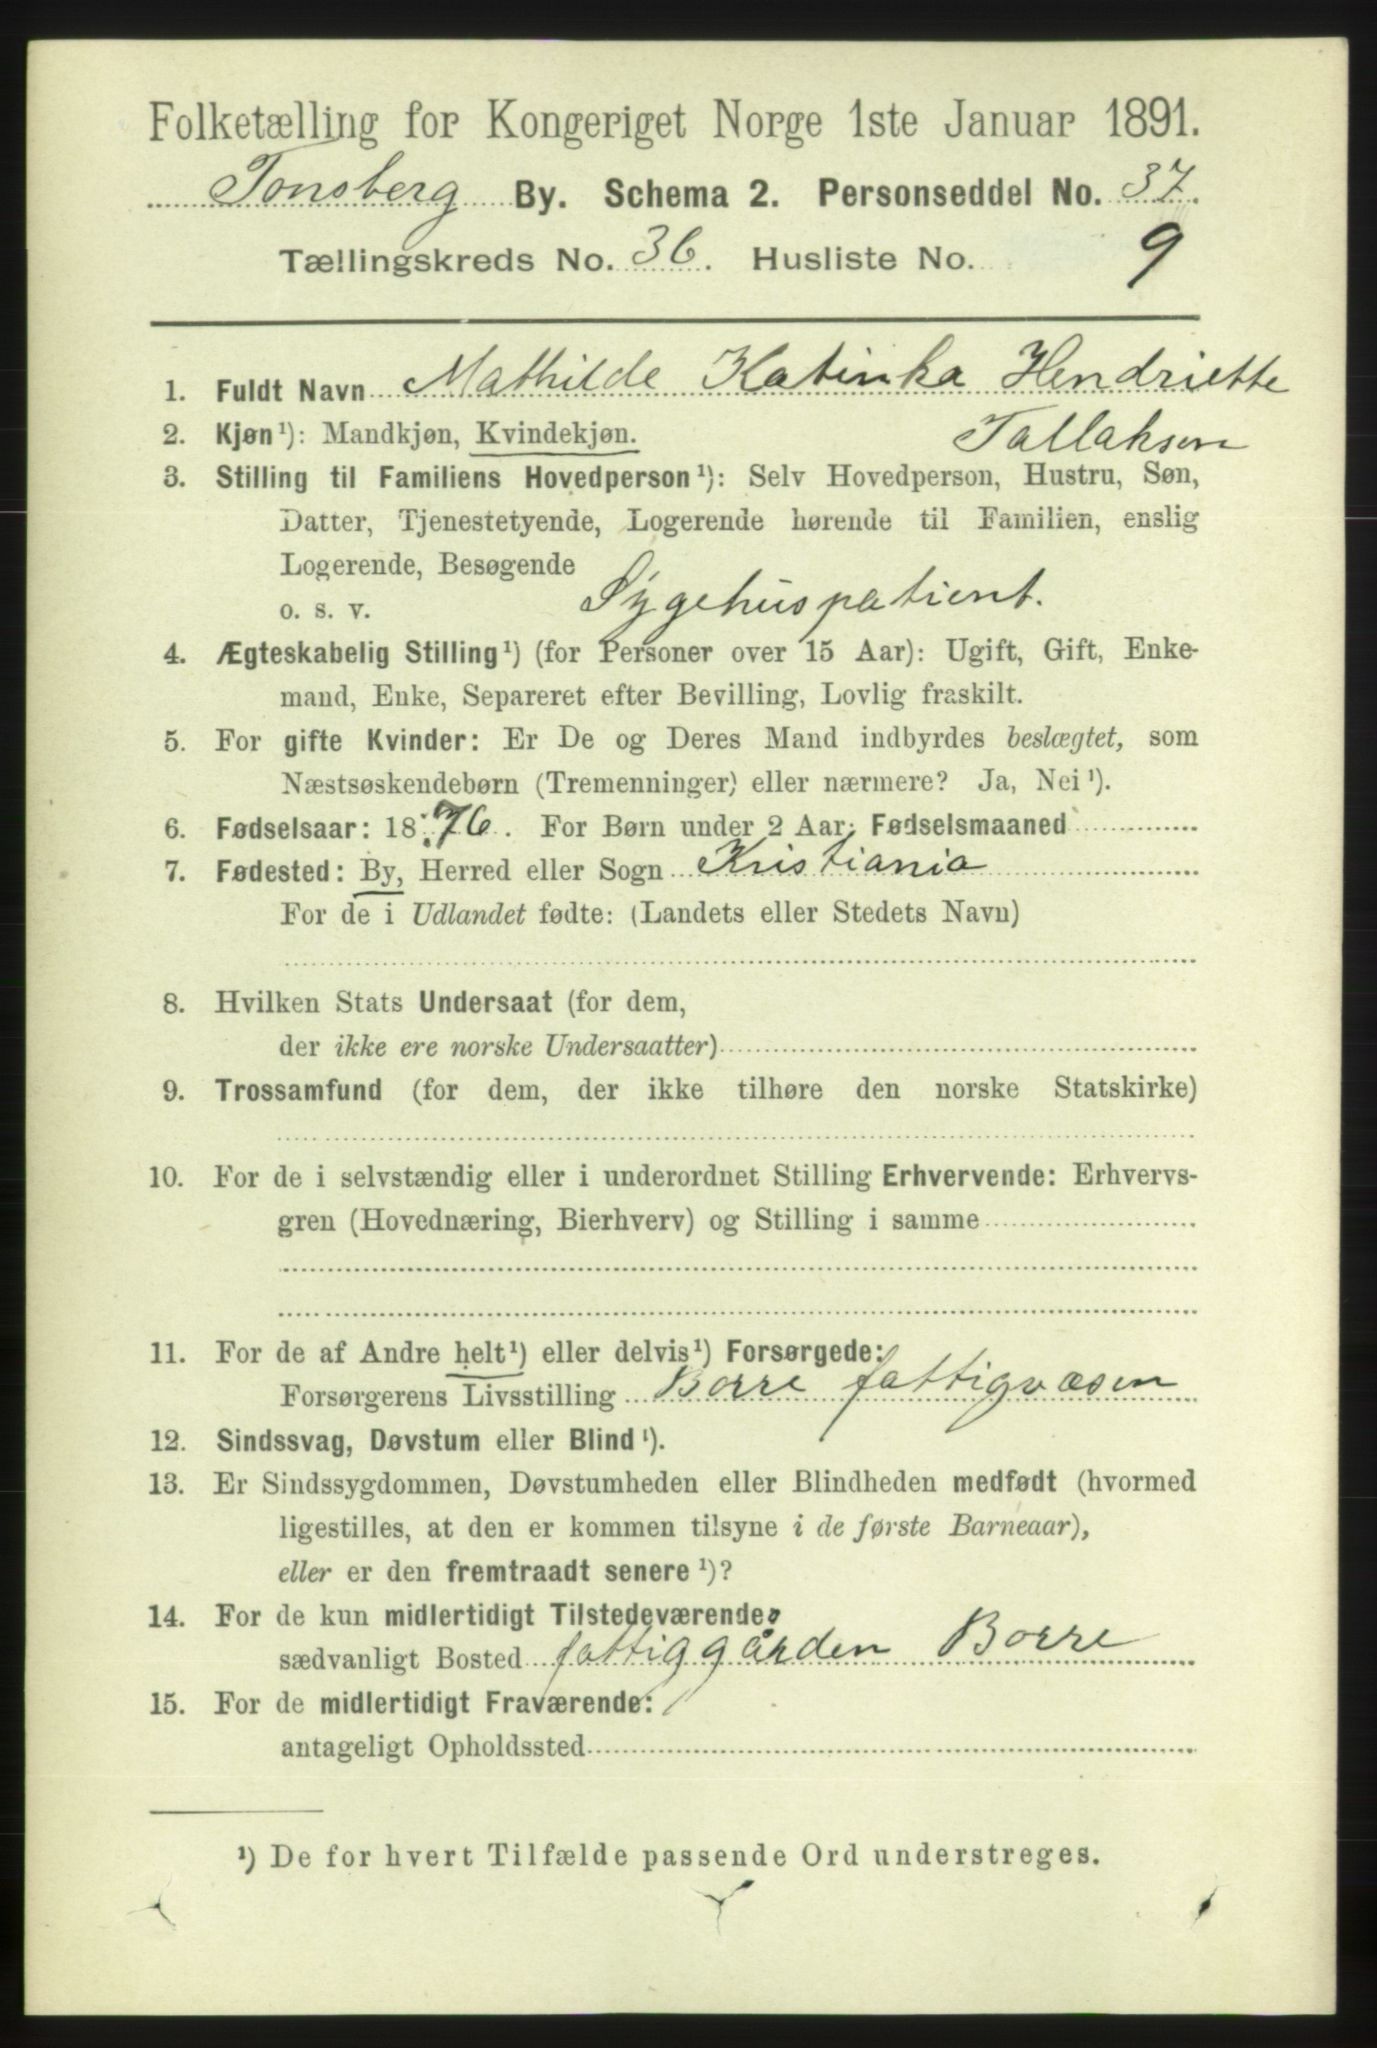 Folketælling for Kongeriget Norge 1ste Januar 1891.
Tønsberg By. Schema 2. Personseddel No. 37.
Tællingskreds No. 36. Husliste No. 9
1. Fuldt Navn Mathilde Katinka Hendriette
Tallaksen
2. Kjøn ¹): Mandkjøn, Kvindekjøn.
3. Stilling til Familiens Hovedperson ¹): Selv Hovedperson, Hustru, Søn,
Datter, Tjenestetyende, Logerende hørende til Familien, enslig
Logerende, Besøgende
o. s. v. Sygehuspatient.
4. Ægteskabelig Stilling ¹) (for Personer over 15 Aar): Ugift, Gift, Enke-
mand, Enke, Separeret efter Bevilling, Lovlig fraskilt.
5. For gifte Kvinder: Er De og Deres Mand indbyrdes beslægtet, som
Næstsøskendebørn (Tremenninger) eller nærmere? Ja, Nei ¹).
6. Fødselsaar: 1876. For Børn under 2 Aar: Fødselsmaaned
7. Fødested: By, Herred eller Sogn Kristiania
For de i Udlandet fødte: (Landets eller Stedets Navn)
8. Hvilken Stats Undersaat (for dem,
der ikke ere norske Undersaatter)
9. Trossamfund (for dem, der ikke tilhøre den norske Statskirke)
10. For de i selvstændig eller i underordnet Stilling Erhvervende: Erhvervs-
gren (Hovednæring, Bierhverv) og Stilling i samme
11. For de af Andre helt ¹) eller delvis ¹) Forsørgede:
Forsørgerens Livsstilling Borre fattigvæsen
12. Sindssvag, Døvstum eller Blind ¹).
13. Er Sindssygdommen, Døvstumheden eller Blindheden medfødt (hvormed
ligestilles, at den er kommen tilsyne i de første Barneaar),
eller er den fremtraadt senere ¹)?
14. For de kun midlertidigt Tilstedeværende:
sædvanligt Bosted fattiggården Borre
15. For de midlertidigt Fraværende:
antageligt Opholdssted
¹) De for hvert Tilfælde passende Ord understreges.